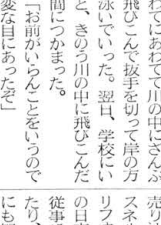 わてにあわてて川の中にざんぶ
飛びこんで抜手を切って岸の方
泳いでいった。翌日、学校にい
と、きのう川の中に飛びこんだ
間につかまった。
「お前がいらんことをいうので
変な目にあったぞ」
売り
スネル
リフキ
の日
従事
たり、
にも